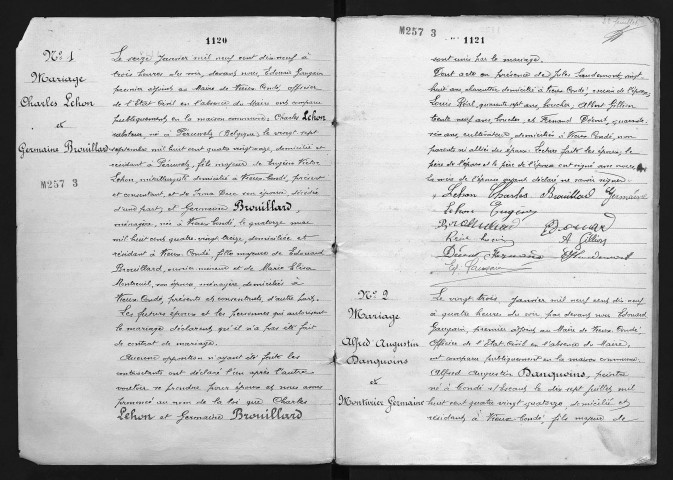 1120
N° 1
Mariage
Charles Lehon
et
Germaine Brouillard
M257 3
Le seize Janvier mil neuf cent dix neuf à
trois heures du soir, devant nous, Edouard Gaugain
premier adjoint au Maire de Vieux Condé, officier
de l'Etat Civil en l'absence du Maire ont comparu
publiquement en la maison commune: Charles Lehon
né à Péruwelz (Belgique) le vingt sept
mil huit cent quatre vingt onze, domicilié et
résidant à Péruwelz, fils majeur de Eugène Victor
Lehon, domicilié à Vieux Condé, présent
et consentant, et de son épouse, décédée
d'une part; et Germaine Brouillard,
ménagère, née à Vieux Condé, le quatorze mai
mil huit cent quatre vingt treize, domiciliée et
résidant à Vieux Condé, fille majeure de Edouard
Brouillard, ouvrier mineur et de Marie Elisa
Montreuil, son épouse, ménagère, domiciliés à
Vieux Condé, présents et consentants, d'autre part.
Les futurs époux et les personnes qui autorisent
le mariage déclarent qu'il n'a pas été fait
de contrat de mariage.
Aucune opposition n'ayant été faite les
contractants ont déclaré l'un après l'autre
vouloir se prendre pour époux et nous avons
prononcé au nom de la loi que Charles
Lehon et Germaine Brouillard
M257 3
1121
sont unis par le mariage.
Dont acte en présence de Jules
huit ans, domicilié à Vieux Condé, cousin de l'époux,
Louis Réal, quarante sept ans, boucher, Albert
trente neuf ans, boucher, et Fernand
ans, domiciliés à Vieux Condé, non
parents ni alliés des époux. Lecture faite les époux, le
père de l'époux et le père de l'épouse ont signé avec nous
la mère de l'épouse ayant déclaré ne savoir signer.
Lehon Charles Brouillard Germaine
Lehon Eugène
Brouillard
A
N° 2
Mariage
Alfred Augustin
Danquoins
et
Monturier Germaine
Le vingt trois Janvier mil neuf cent dix neuf
à quatre heures du soir par devant nous Edouard
Gaugain, premier adjoint au Maire de Vieux Condé
Officier de l'Etat Civil en l'absence du Maire,
ont comparu publiquement en la maison commune:
Alfred Augustin Danquoins, peintre
né à Condé s/ Escaut le dix sept juillet mil
huit cent quatre vingt quatorze, domicilié et
résidant à Vieux Condé, fils majeur de